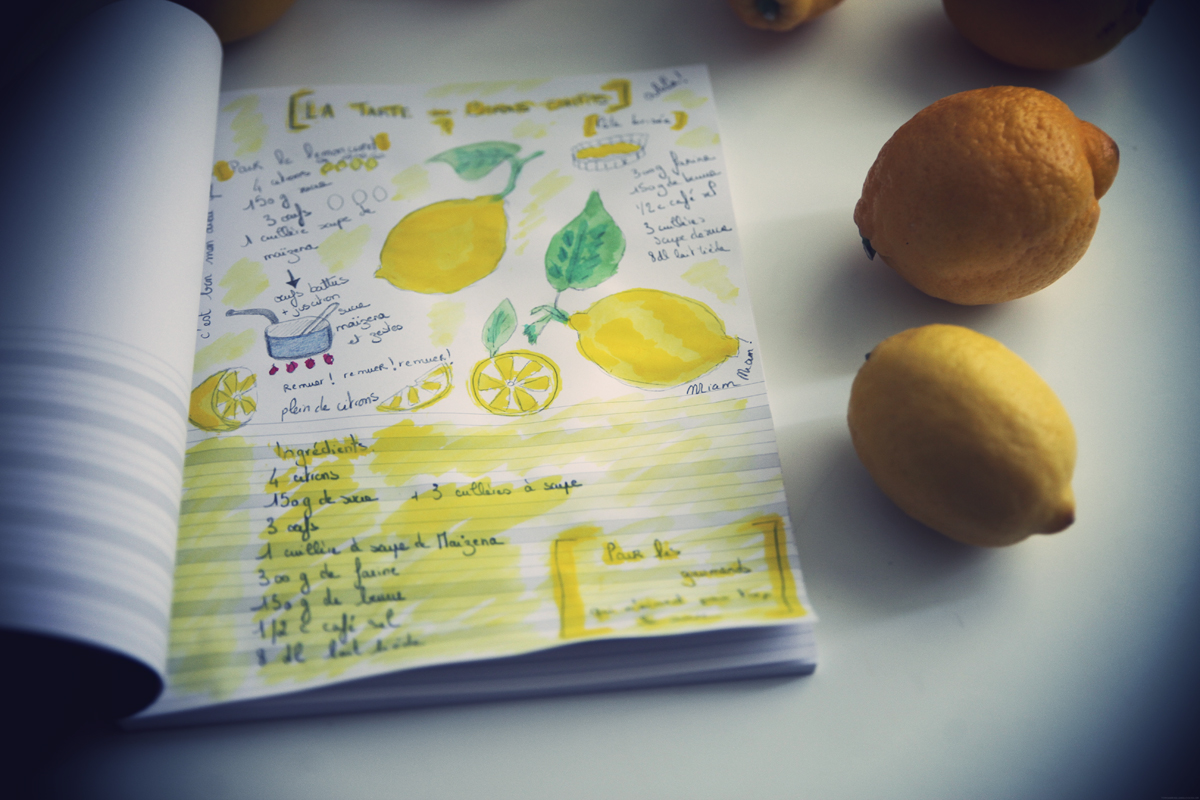 [LA TARTE
[Pâte brisée]
Pour le lemoncurd
4 citrons
150 g sucre
3 œufs
1 cuillère soupe de
maïzena
œufs battus
+ jus citron
sucre
maïzena
et zestes
Remuer! remuer! remuer!
plein de citrons
c'est bon mon
300g farine
150g de beurre
1/2 c café sel
3 cuillères
soupe de sucre
8dl lait tiède
Miam Miam!
Ingrédients.
4 citrons
150g de sucre + 3 cuillères à soupe
3 œufs
1 cuillère à soupe de Maïzena
300 g de farine
150g de beurre
1/2 c café sel
8 dl lait tiède
Pour les
gourmands